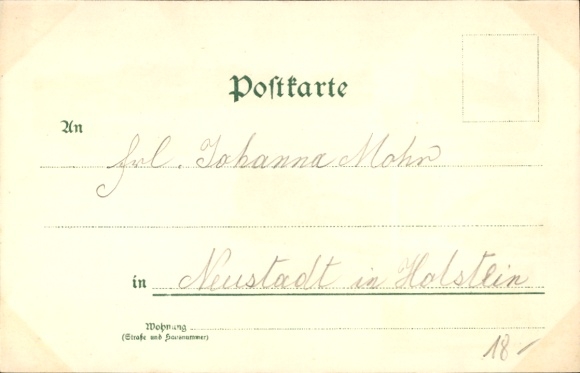 Postkarte
An
Frl. Johanna Mohr
in Neustadt in Holstein
Wohnung
(Straße und Hausnummer)
18-